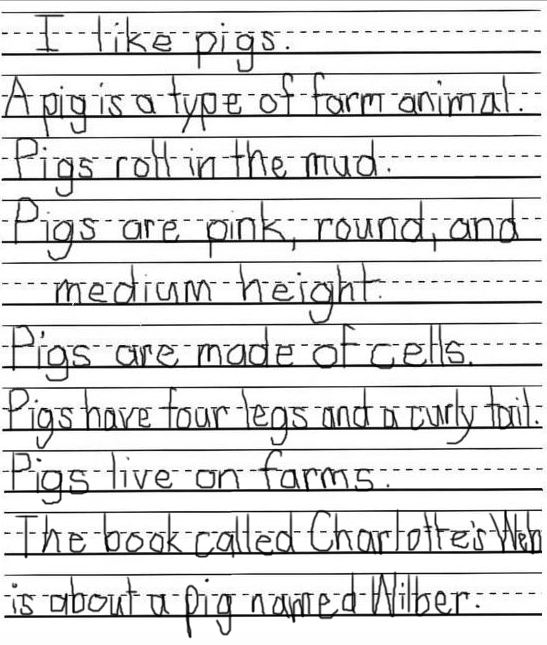 I like pigs.
A pig is a type of farm animal.
Pigs roll in the mud.
Pigs are pink, round, and
medium height.
Pigs are made of cells.
Pigs have four legs and a curly tail.
Pigs live on farms.
The book called Charlotte's Web
is about a pig named Wilber.